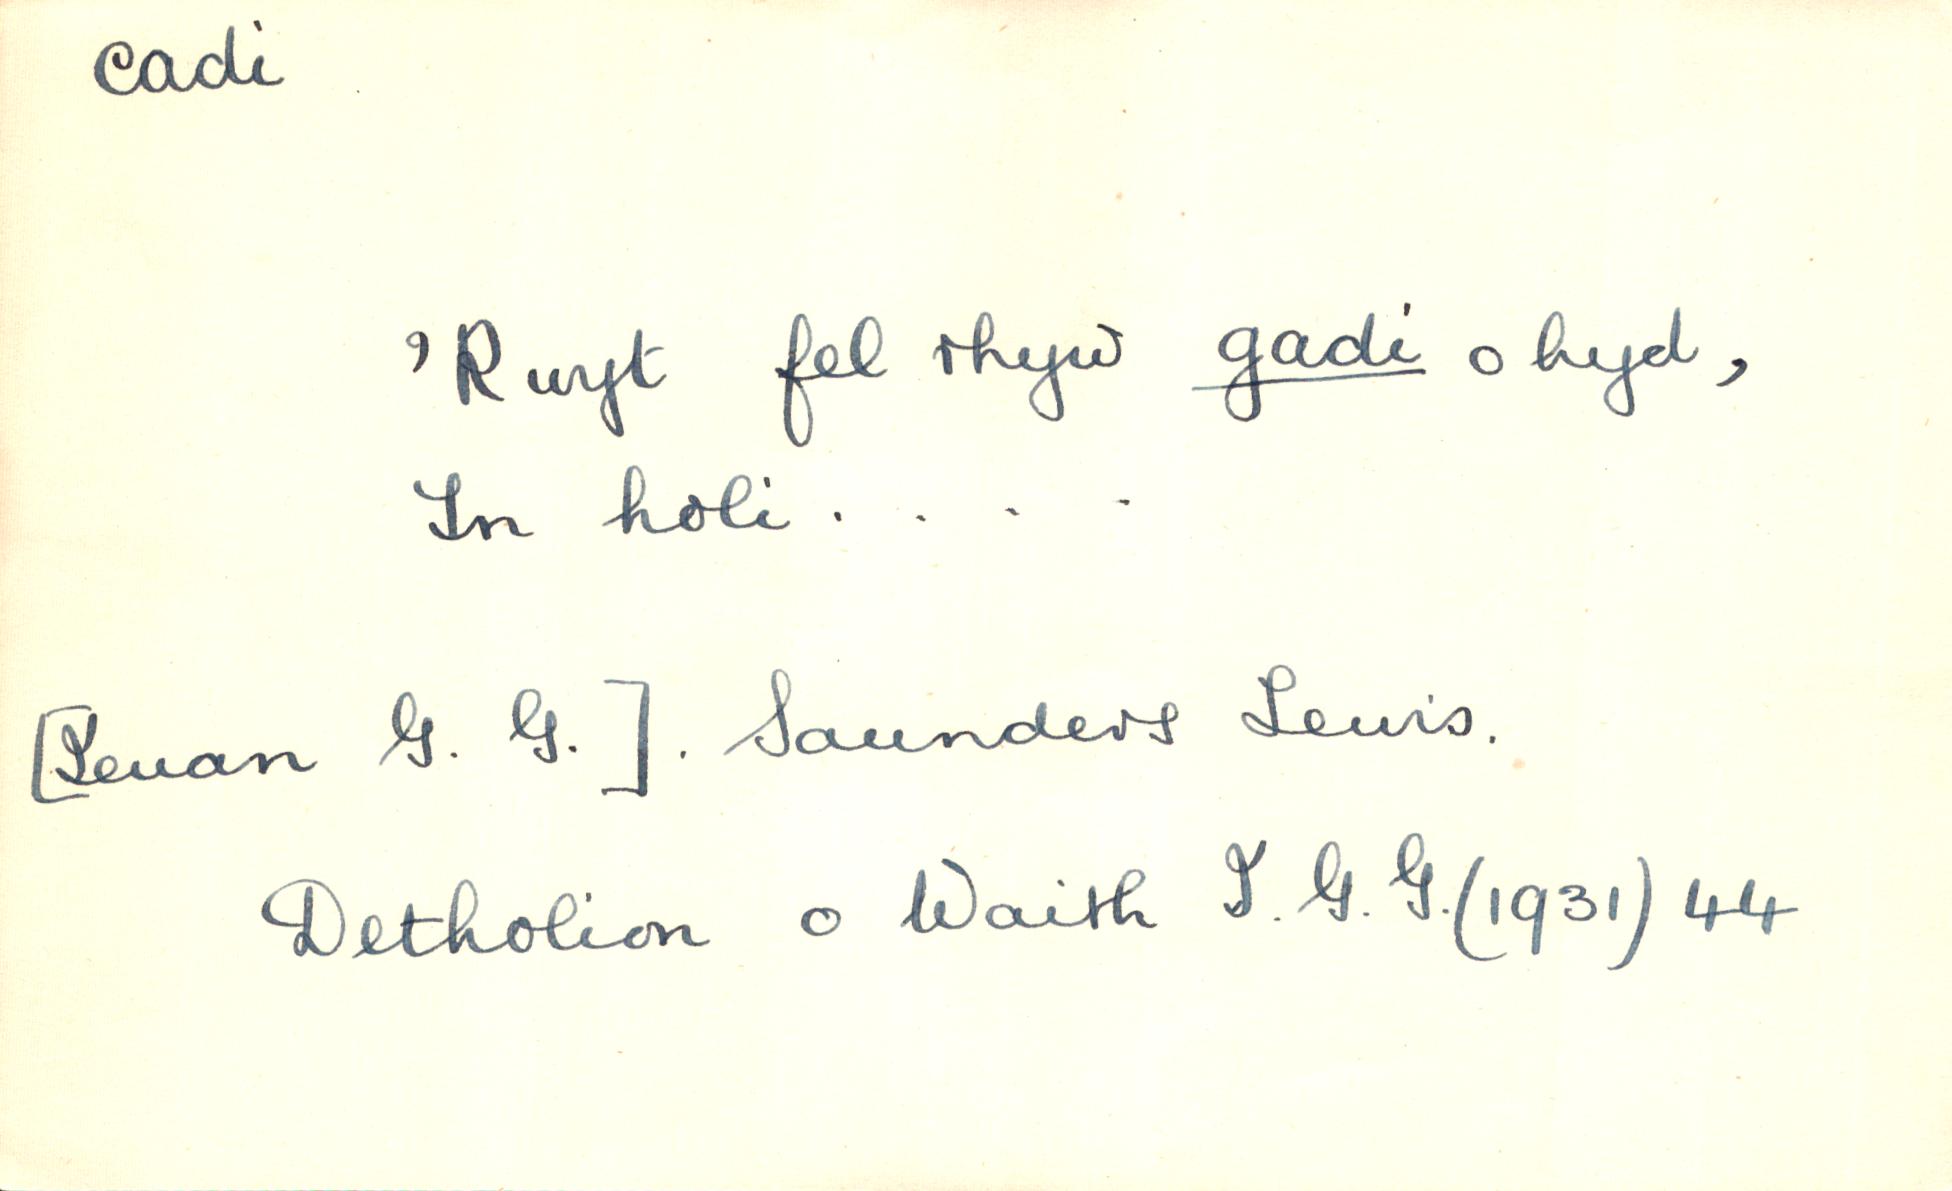 cadi
'Rwyt fel rhyw gadi o hyd,
Yn holi . . . .
[Ieuan G. G.]. Saunders Lewis.
Detholion o Waith I. G. G. (1931) 44